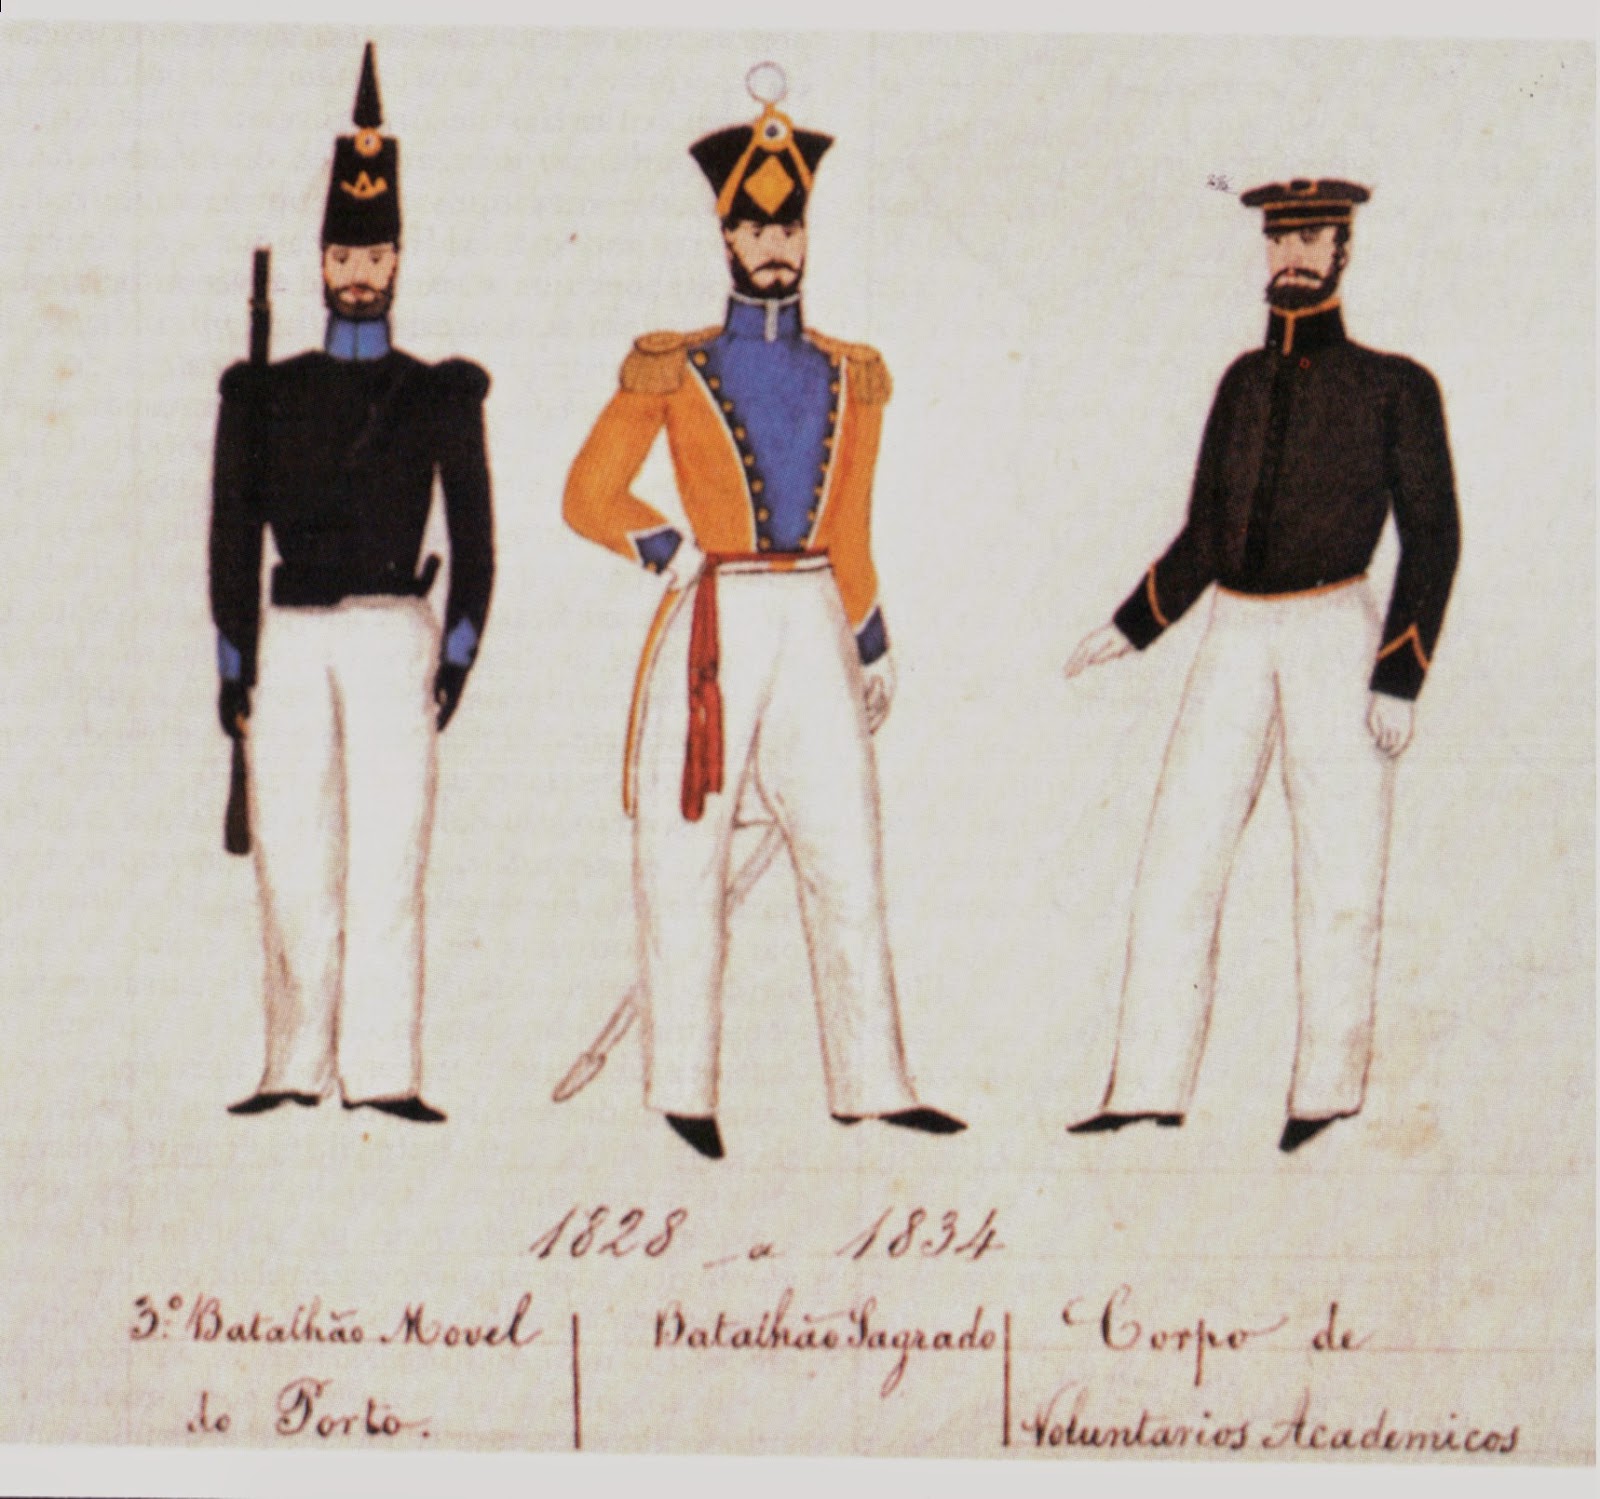 1828 a 1834
3º Batalhão Movel
do Porto.
Batalhão Sagrado
Corpo de
Voluntarios Academicos